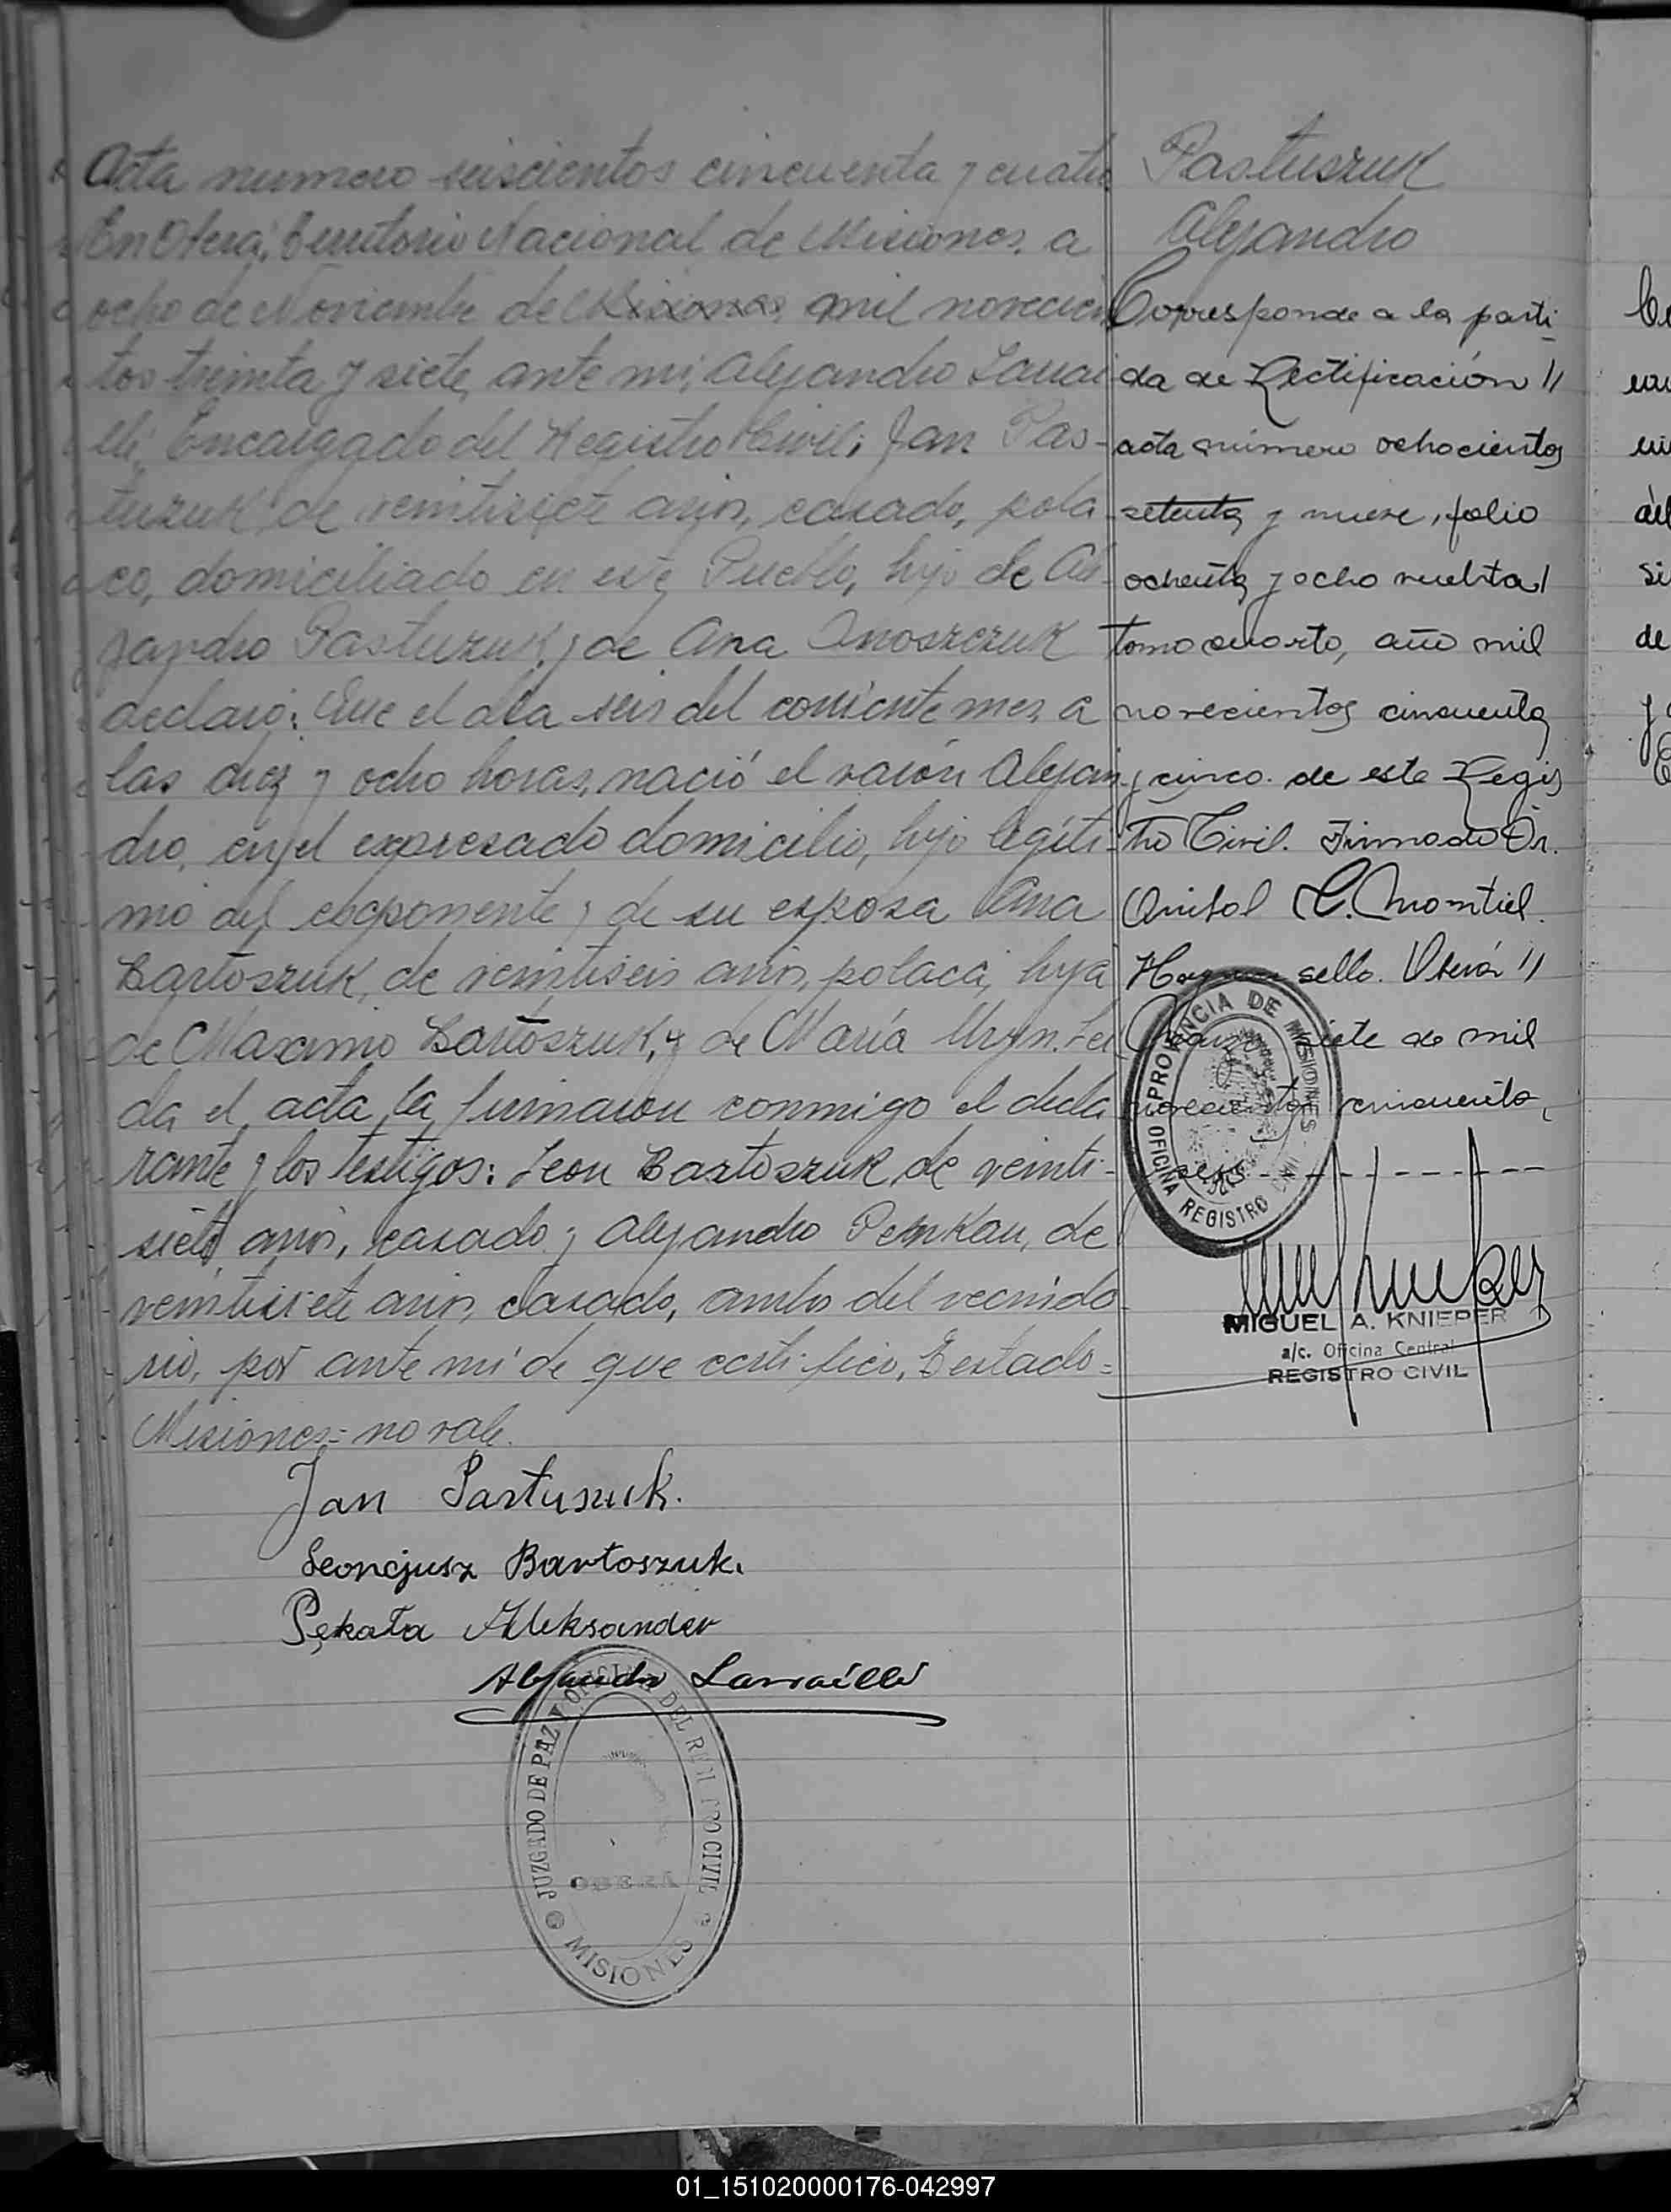 Acta numero seiscientos cincuenta y cuatro
En Oberá, Territorio Nacional de Misiones, a
ocho de Noviembre de Misiones, mil novecien
tos treinta y siete, ante mi, Alejandro Larrai
llé, Encargado del Registro Civil; Jan Pas-
tuzuk, de veintisiete años, casado, pola
co, domiciliado en este Pueblo, hijo de Ale-
jandro Pastuzuk y de Ana Onoszczuk
declaró: Que el dia seis del corriente mes, a
las diez y ocho horas, nació el varón Alejan
dro, en el expresado domicilio, hijo legíti-
mo del exponente y de su esposa Ana
Bartoszuk, de veintiseis años, polaca, hija
de Maximo Bartoszuk, y de María Leí
da el acta la firmaron conmigo el decla
rante y los testigos: Leon Bartoszuk, de veinti-
siete años, casado y Alejandro Pemkau, de
veintisiete años, casado, ambos del vecinda
rio, por ante mi de que certifico, Testado=
Misiones= no vale.
Jan Pastuszuk.
Leoncjusz Bartoszuk.
Pękata Aleksander
Alejandro Larraillé
JUZGADO DE PAZ Y OFICINA DEL REGISTRO CIVIL
OBERA
MISIONES
Pastuszuk
Alejandro
Corresponde a la parti
da de Rectificación //
acta número ochocientos
setenta y nueve, folio
ochenta y ocho vuelta /
tomo cuarto, año mil
novecientos cincuenta
y cinco. de este Regis
tro Civil. Firmado Dr.
Anibal C. Montiel.
Hay un sello. Oberá //
Marzo siete de mil
novecientos cincuenta
y seis
PROVINCIA DE MISIONES
OFICINA REGISTRO CIVIL
MIGUEL A. KNIEPER
a/c. Oficina Central
REGISTRO CIVIL
01_151020000176-042997